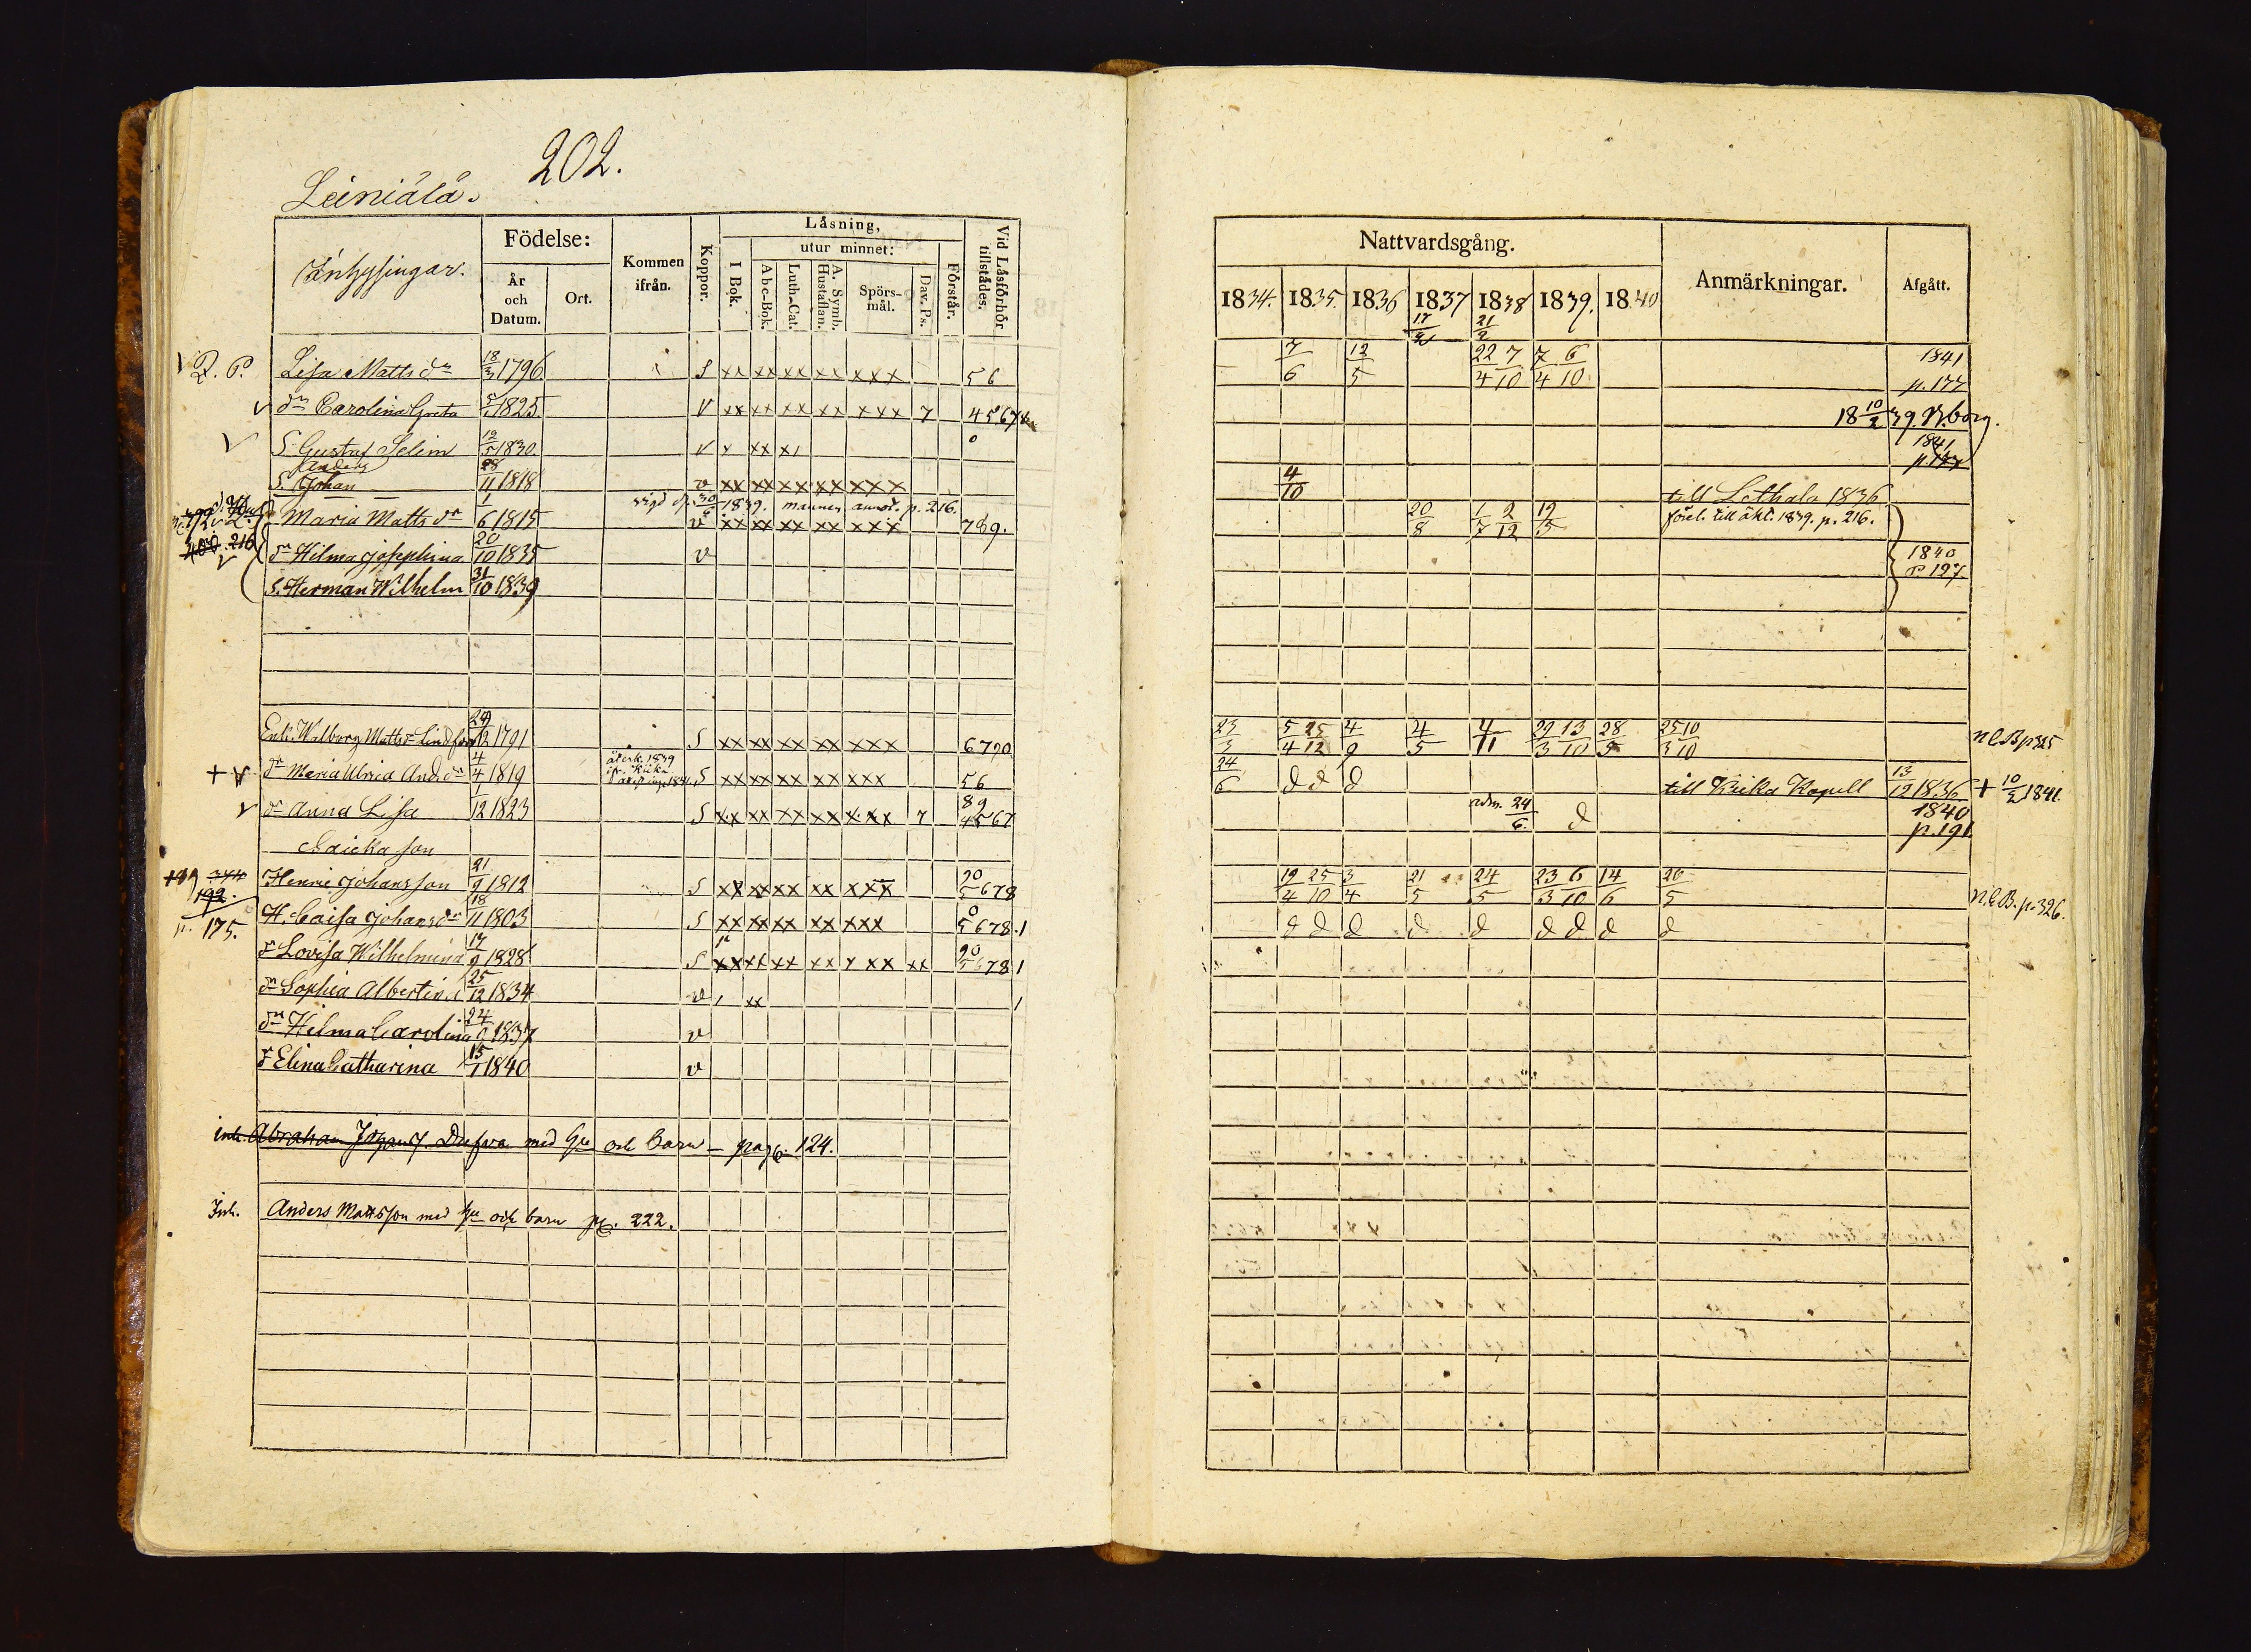 202.
Leiniälä.
Inhysingar.
Födelse:
År och Datum.
Ort.
Kommen ifrån.
Koppor.
Låsning,
I Bok.
utur minnet:
Abc-Bok.
Luth-Cat.
A. Symb. Hustaflan.
Spörs-mål.
Dav. Ps.
Förstår.
Vid Låsförhör tillstådes.
Lisa Matts dr 18/3 1796 S xx xx xx xx xxx 56
dr Carolina Greta 5/ 1825 V xx xx xx xx xxx 7 4567
S. Gustaf Selim 12/5 1830 V x xx x
Anders
S. Johan 28/11 1818 v xx xx xx xx xxx
vigd d. 30/6 1839. mannen annot. p. 216.
Maria Matts dr 1/6 1815 v xx xx xx xx xxx 789.
400. 216
dr Hilma Josephina 20/10 1835 v
S. Herman Wilhelm 31/10 1839
Enk. Walborg Matts dr Lindfors 24/12 1791 S xx xx xx xx xxx 6790
återk. 1839 ifr. Kiika
+ dr Maria Ulrica And. dr 4/4 1819 S xx xx xx xx xxx 56
dr Anna Lisa 1/12 1823 S xx xx xx xx xxx 7 89 4567
Saicka son
344
192.
Henric Johansson 21/9 1812 S xx xx xx xx xxx 90 5678
p. 175.
H. Caisa Johans dr 18/11 1803 S xx xx xx xx xxx 0 5678.1
dr Lovisa Wilhelmina 17/9 1828 S xx xx xx xx xxx xx 90 5678 1
dr Sophia Albertina 25/12 1834 v xx 1
dr Hilma Carolina 24/9 1837 v
dr Elina Catharina 15/1 1840 v
inh. Abraham Johans. Dufva med hu och barn – pag. 124.
Inh. Anders Mattsson med hu och barn pag. 222.
Nattvardsgång.
1834. 1835. 1836 1837 1838 1839. 1840
Anmärkningar.
Afgått.
17/2 21/2
7/6 12/5 22/4 7/10 7/4 6/10 1841 p. 177
18 10/2 39 N.borg.
1841 p. 177
4/10 till Lethala 1836
20/8 1/7 2/12 12/5 föret. till äkt. 1839. p. 216.
1840
p 197.
23/3 5/4 25/12 4/9 4/5 4/11 29/3 13/10 28/5 25/3 10/10 N.C.B p 325
24/6 d d d till Kiika Kapell 13/12 1836 + 10/2 1841.
adm. 24/6. d 1840 p. 191.
19/4 25/10 3/4 21/5 24/5 23/3 6/10 14/6 26/5 N.C.B. p. 326.
d d d d d d d d d